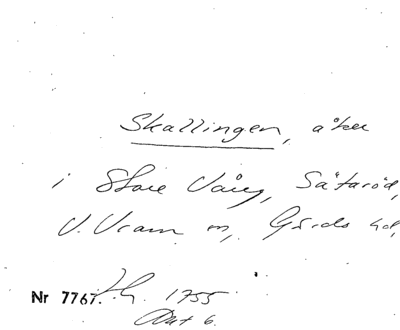 Skallingen, åker
i Store Vång, Sätaröd,
V. Vram sn, Gärds hd,
Nr 7767. 1755
Akt 6.